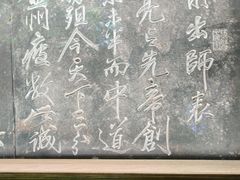 出師表
亮言先帝創
未半而中道
殂今天下三分
州疲敝此誠